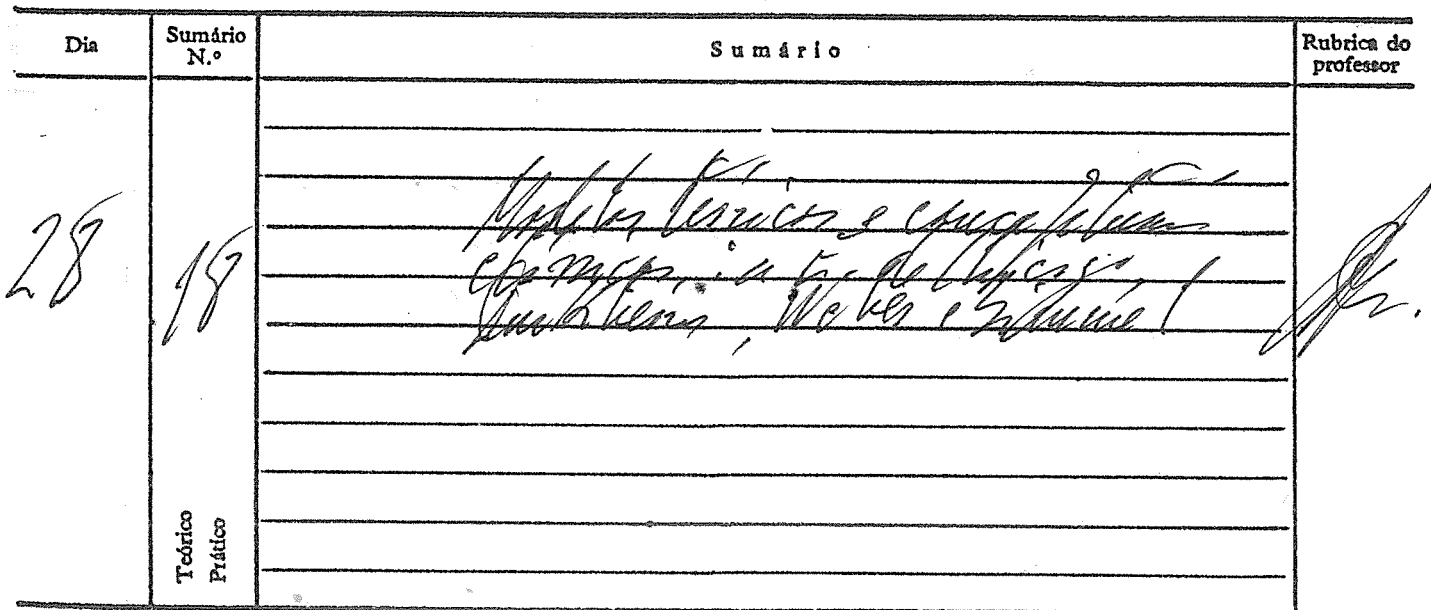 Dia
Sumário N.º
Sumário
Rubrica do professor
28
18
Modelos teóricos e conceptuais
clássicos
Durkheim, Weber e Simmel
Teórico
Prático